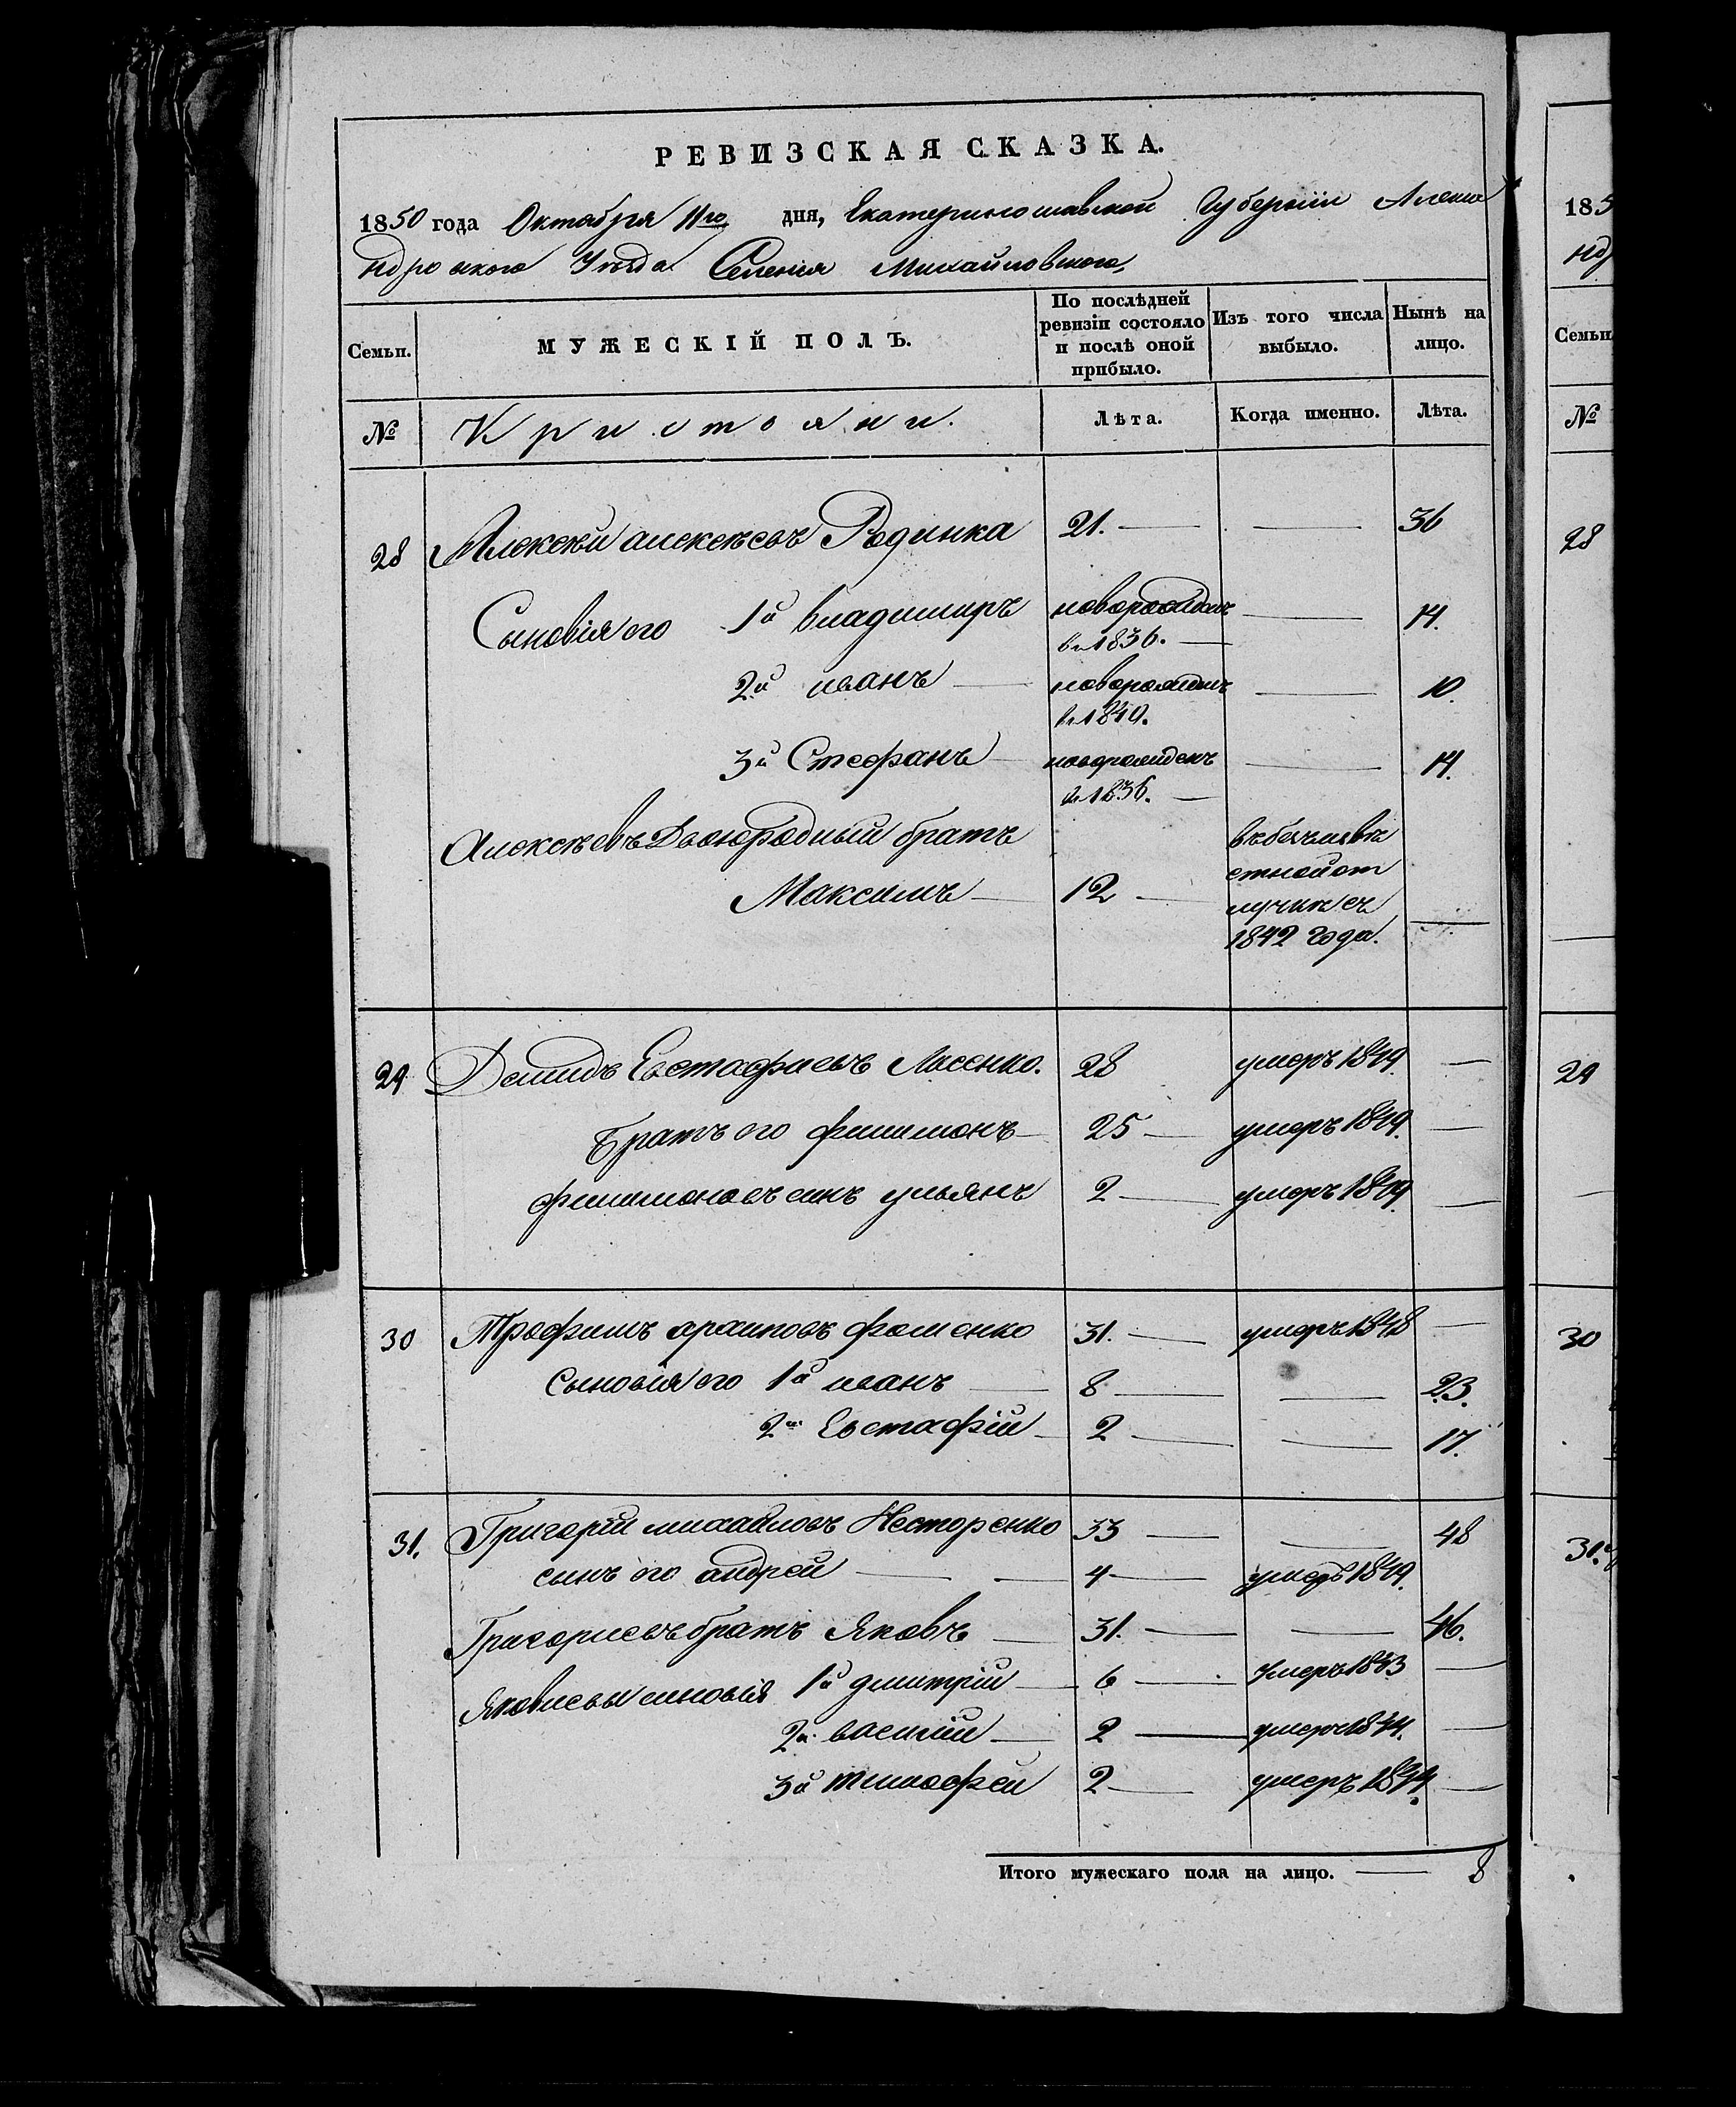 РЕВИЗСКАЯ СКАЗКА.
1850 года Октября 11го дня, Екатеринославской Губернiи Алекса
ндровского Уезда Селенiя Михайловского,
Семьи. МУЖЕСКІЙ ПОЛЪ. По послѣдней ревизіи состояло и послѣ оной прибыло. Изъ того числа выбыло. Нынѣ на лицо.
№ Кристояни. Лѣта. Когда именно. Лѣта.
28 Алексѣй алексѣевъ Родинка 21. — — 36
Сыновія его 1й владимиръ новорожденъ в 1836. — — 14.
2й иванъ — новорожденъ в 1840. — 10.
3й Стефанъ — новорожденъ в 1836. — — 14.
Алексѣевъ Двоюродный братъ
Максимъ — 12 — въ безъизвѣ
стной от
лучке съ
1842 года. —
29 Демидъ Евстафиевъ Лисенко. 28 умеръ 1849. —
Братъ его филимонъ — 25 — умеръ 1849. —
филимоновъ синъ ульянъ 2 — умеръ 1849. —
30 Трофимъ архиповъ фоменко 31. — умеръ 1848 —
Сыновія его 1й иванъ — 8 — — 23.
2й Евстафій — 2 — — 17.
31. Григорій михайловъ Несторенко 33 — — 48
сынъ его андрей — — 4 — умеръ 1849.
Григориевъ братъ Яковъ — 31. — — 46.
Яковлевы синовія 1й дмитрій — 6 — умеръ 1843 —
2й василій — 2 — умеръ 1844. —
3й тимофей 2 — умеръ 1844. —
Итого мужескаго пола на лицо. — 8
185
нд
Семьи
№
28
29
30
31.